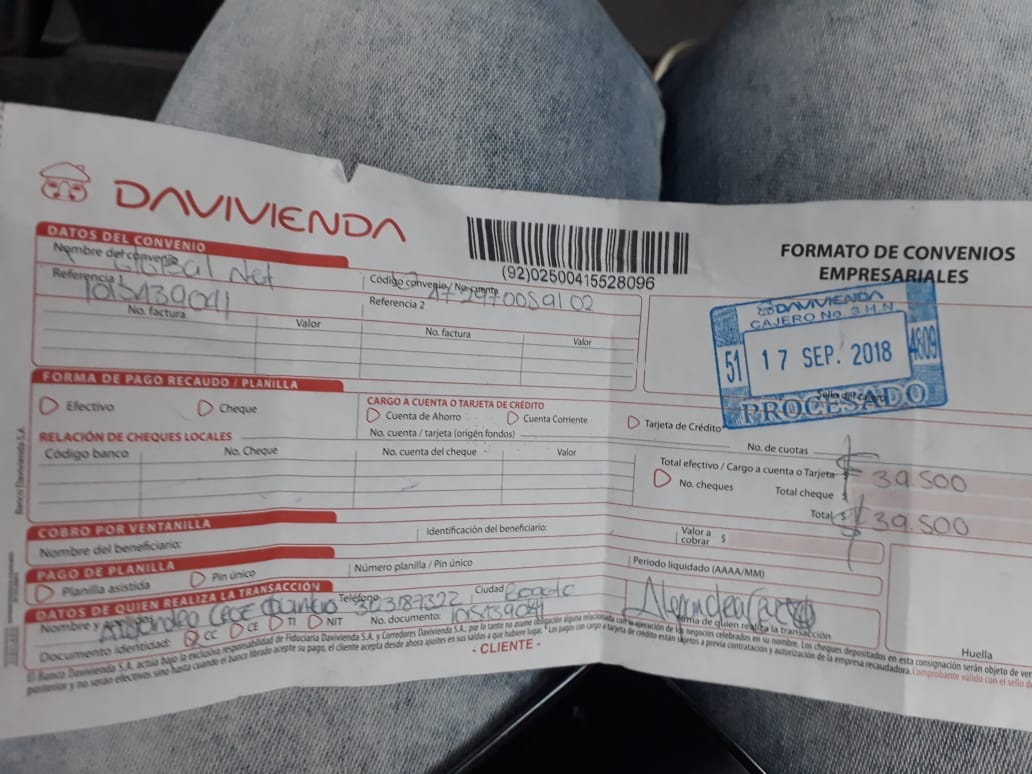 DAVIVIENDA
(92)02500415528096
FORMATO DE CONVENIOS
EMPRESARIALES
DATOS DEL CONVENIO
Nombre del convenio Global Net
Código convenio / No. cuenta
Referencia 1 1015439041
Referencia 2
No. factura Valor No. factura Valor
DAVIVIENDA
CAJERO No. 3 H.N
51 17 SEP. 2018 4609
PROCESADO
Sello del cajero
FORMA DE PAGO RECAUDO / PLANILLA
Efectivo Cheque
CARGO A CUENTA O TARJETA DE CRÉDITO
Cuenta de Ahorro Cuenta Corriente Tarjeta de Crédito
No. cuenta / tarjeta (origen fondos)
No. de cuotas
RELACIÓN DE CHEQUES LOCALES
Código banco No. Cheque No. cuenta del cheque Valor
Total efectivo / Cargo a cuenta o Tarjeta $ 39.500
No. cheques Total cheque $
Total $ 39.500
COBRO POR VENTANILLA
Nombre del beneficiario: Identificación del beneficiario: Valor a cobrar $
PAGO DE PLANILLA
Planilla asistida Pin único Número planilla / Pin único Periodo liquidado (AAAA/MM)
DATOS DE QUIEN REALIZA LA TRANSACCIÓN
Nombre y Teléfono 3123187322 Ciudad Bogota
Documento identidad: CC CE TI NIT No. documento:
Firma de quien realiza la transacción
Huella
El Banco Davivienda S.A. actúa bajo la exclusiva responsabilidad de Fiduciaria Davivienda S.A. y Corredores Davivienda S.A., por lo tanto no asume obligación alguna relacionada con la ejecución de los negocios celebrados en su nombre. Los cheques depositados en esta consignación serán objeto de
posterior y no serán efectivos sino hasta cuando el banco librado acepte su pago, el cliente acepta desde ahora ajustes en sus saldos a que hubiere lugar. * Los pagos con cargo a tarjeta de crédito están sujetos a previa contratación y autorización de la empresa recaudadora. Comprobante válido con el sello
- CLIENTE -
Banco Davivienda S.A